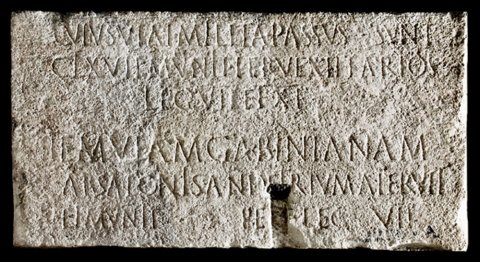 CVIVS VIAI MILLIA PASSVS SVNT
CLXVII MVNIT PER VEXILLARIOS
LEG VII ET XI
ITEM VIAM GABINIANAM
AB SALONIS ANDETRIVM APERVIT
ET MVNIT PER LEG VII